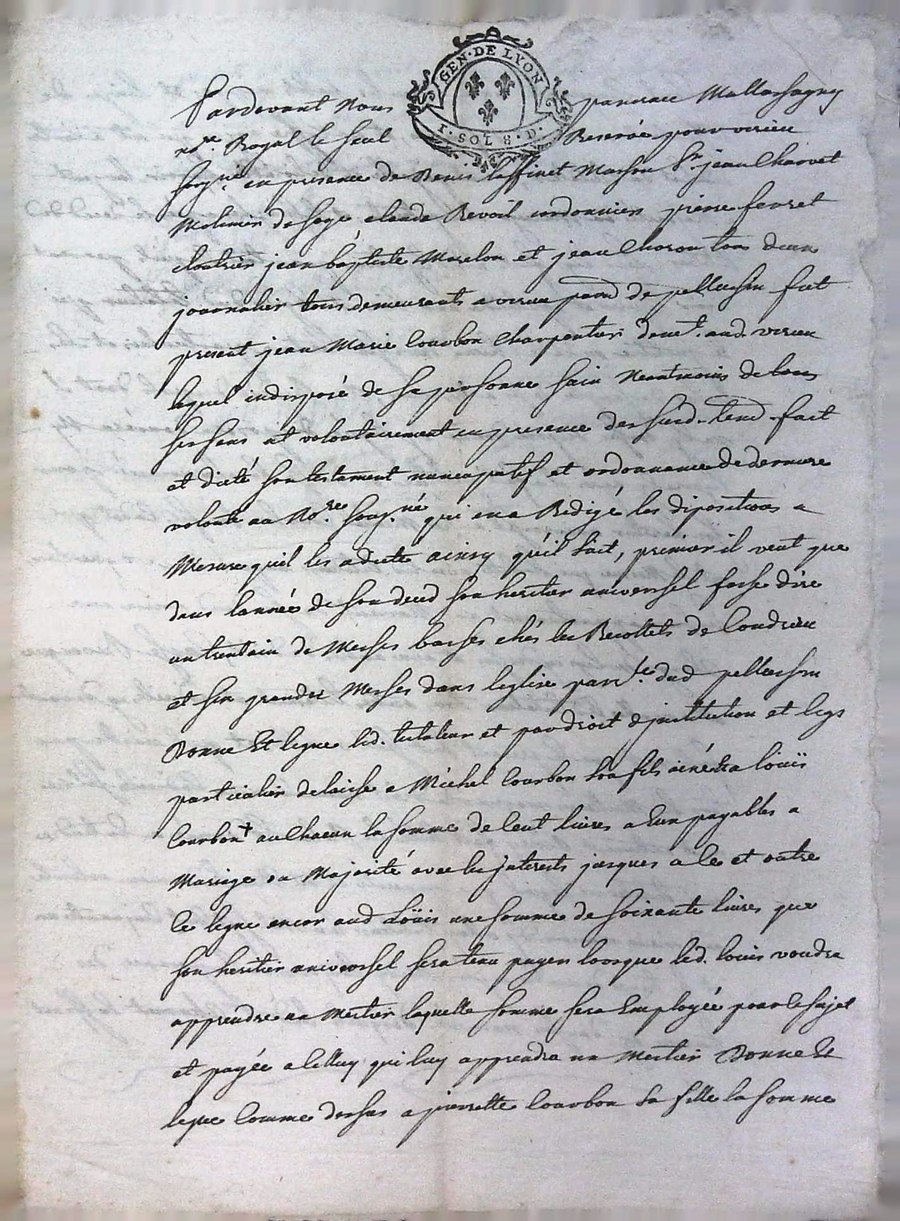 GEN · DE LYON
1 · SOL 8 · D ·
Pardevant Nous pancrace Mallassagny
no.re Royal le seul Reservé pour virieu
soug.né en presence de Benoit Maffinet Masson S.r jean Charvet
Molinier de soye claude Revoil cordonnier pierre feuret
cloutrier jean baptiste Marelon et jean Choron tous deux
journalier tous demeurants a virieu par.sse de pellussin fut
present jean Marie Courbon Charpentier deme.t aud. virieu
lequel indisposé de sa personne sain Neantmoins de tous
ses sens et volontairement en presence desd. a fait
et dicté son testament nuncupatif et ordonnance de derniere
volonte au No.re soug.né qui en a Redigé les dipositions a
Mesure qu'il les a dicté ainsy qu'il suit, premier il veut que
dans lannée de son deced son heritier universel fasse dire
un trentain de Messes basses chés les Recollets de Condrieu
et six grandes Messes dans leglise par.le dud pellussin
Donne Et legue led. testateur et par droit d'jnstitution et legs
particulier delaisse a Michel Courbon son fils ainé & a Loüis
Courbon a Chacun la somme de Cent livres a Eux payables a
Mariage ou Majorité avec les jnterests jusques a ce et outre
ce legue encor aud Loüis une somme de soixante livres que
son heritier universel sera tenu payer lorsque led. louis voudra
apprendre un Mestier laquelle somme sera Employée pour ce sujet
et payée a celluy qui luy apprendra un mestier Donne Et
legue Comme dessus a pierrette Courbon sa fille la somme